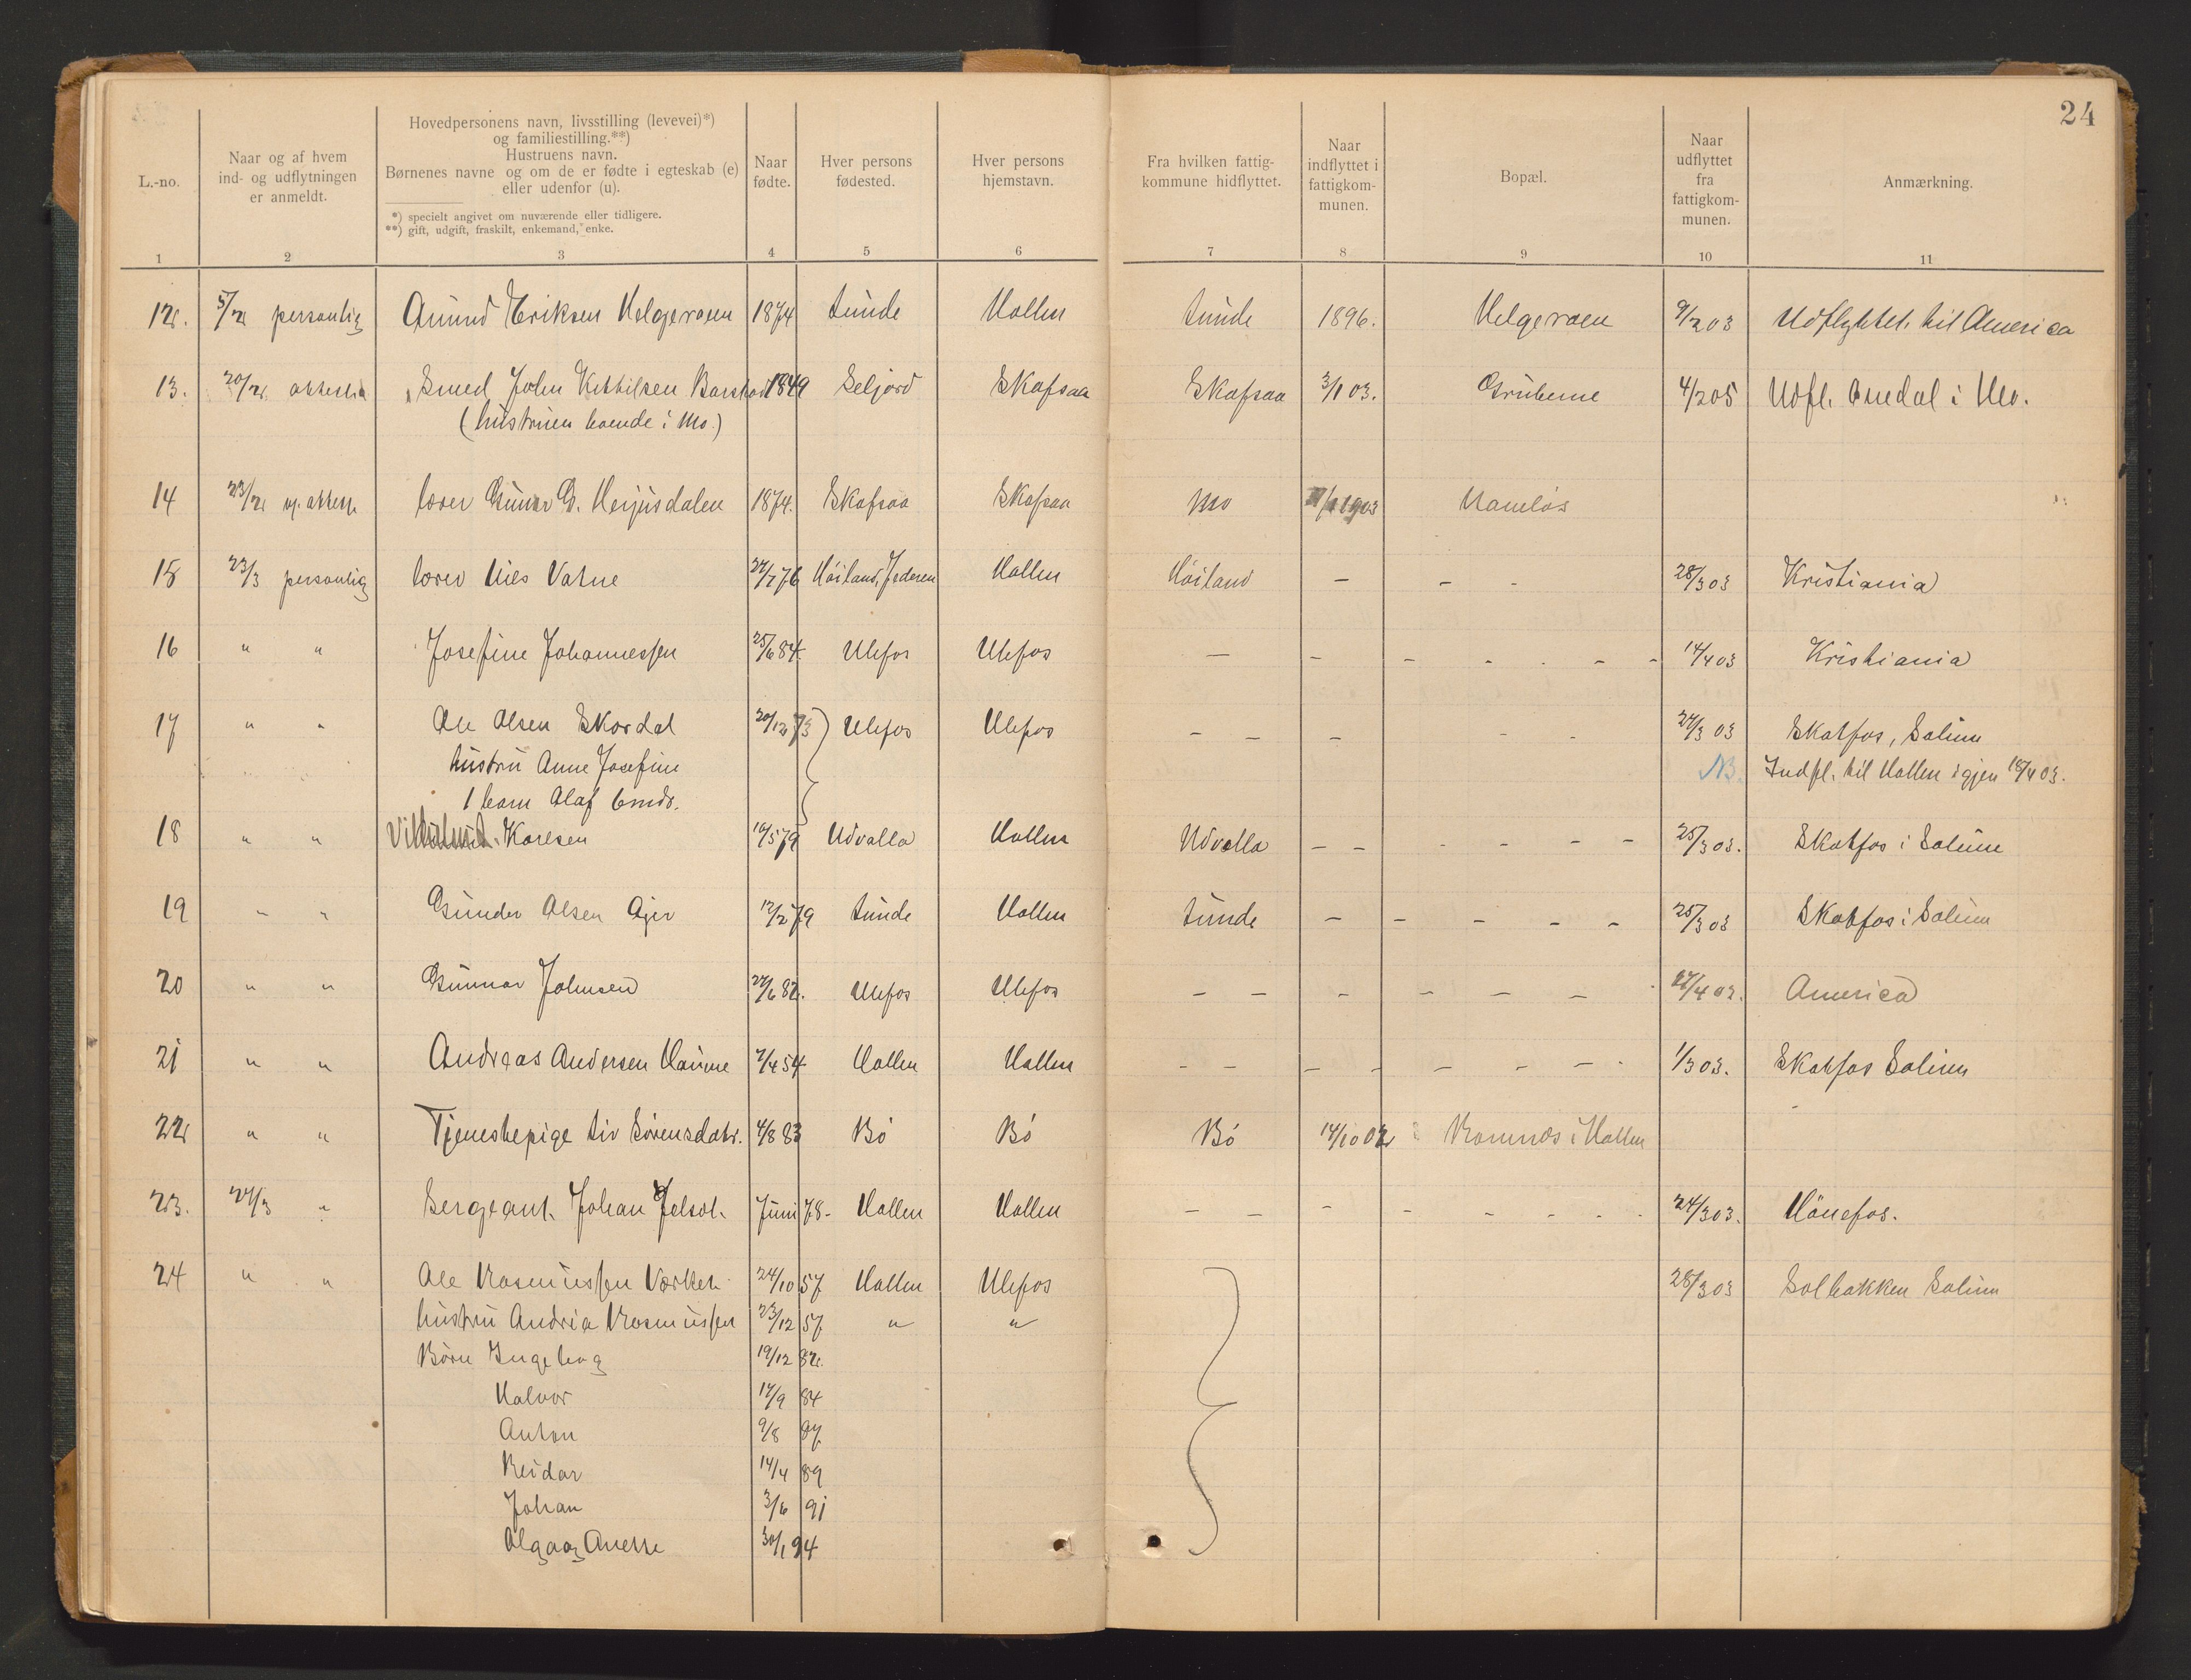 24
L.-no.
Naar og af hvem
ind- og udflytningen
er anmeldt.
Hovedpersonens navn, livsstilling (levevei)*)
og familiestilling.**)
Hustruens navn.
Børnenes navne og om de er fødte i egteskab (e)
eller udenfor (u).
*) specielt angivet om nuværende eller tidligere.
**) gift, udgift, fraskilt, enkemand, enke.
Naar
fødte.
Hver persons
fødested.
Hver persons
hjemstavn.
Fra hvilken fattig-
kommune hidflyttet.
Naar
indflyttet i
fattigkom-
munen.
Bopæl.
Naar
udflyttet
fra
fattigkom-
munen.
Anmærkning.
1 2 3 4 5 6 7 8 9 10 11
12. 5/2 personlig Amund Eriksen Helgeraen 1874 Lunde Hollen Lunde 1896. Helgeraen 9/2 03 Udflyttet til America
13. 20/2 attesten Smed John Kittilsen 1849 Seljord Skafsaa Skafsaa 3/1 03. Gruberne 4/2 05 Udfl. Omdal i Mo.
(hustruen boende i Mo.)
14 23/2 attest lærer Gunnar G. Herjusdalen 1874. Skafsaa Skafsaa Mo 1903 Namløs
15 23/3 personlig lærer Niels Vatne 76 Höiland, Jederen Hollen Höiland – – – 28/3 03 Kristiania
16 " " Josefine Johannessen 25/6 84. Ulefos Ulefos – – – – – – – 14/4 03 Kristiania
17 " " Ole Olsen Skordal 20/12 73 Ulefos Ulefos – – – – – 24/3 03 Skotfos, Solum
hustru Anne Josefine NB. Indfl. til Hollen igjen 18/4 03.
1 barn Olaf 6 mdr.
18 " " Karlsen 79 Udvalla Hollen Udvalla – – – – – – 25/3 03. Skotfos i Solum
19 " " Gunder Olsen Ajer 12/2 79 Lunde Hollen Lunde – – – – – 25/3 03 Skotfos i Solum
20 " " Gunnar Johnsen 82. Ulefos Ulefos – – – – – – America
21 " " Andreas Andersen Haune 7/4 54 Hollen Hollen – – – – – – – 1/3 03. Skotfos Solum
22 " " Tjenestepige Liv Sörensdatr. 4/8 83 Bö Bö Bö 14/10 02 Romnes i Hollen
23. 24/3 " Sergeant Johan Juni 78 - Hollen Hollen – – – – – – – 24/3 03. Hönefos.
24 " " Ole Rasmussen Værket 24/10 57 Hollen Ulefos 28/3 03 Solbakken Solum
hustru Andrea Rasmussen 23/12 57 " "
Børn Ingeborg 19/12 82.
Halvor 84
Anton 9/8 87.
Reidar 14/4 89
Johan 3/6 91
Olga og Anette 30/1 94